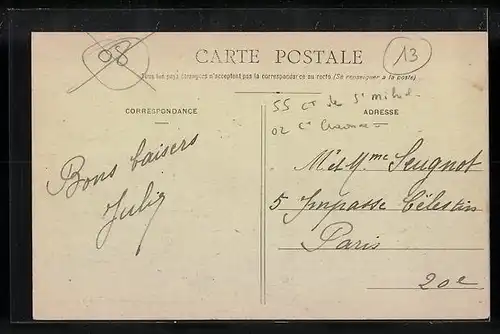 08
CARTE POSTALE
13
Tous les pays étrangers n'acceptent pas la correspondance au recto (Se renseigner à la poste)
CORRESPONDANCE
ADRESSE
55 ct de St Mihiel
02 ct
Bons baisers
Julia
Mr et Mme Seugnot
5 Impasse Célestin
Paris
20e